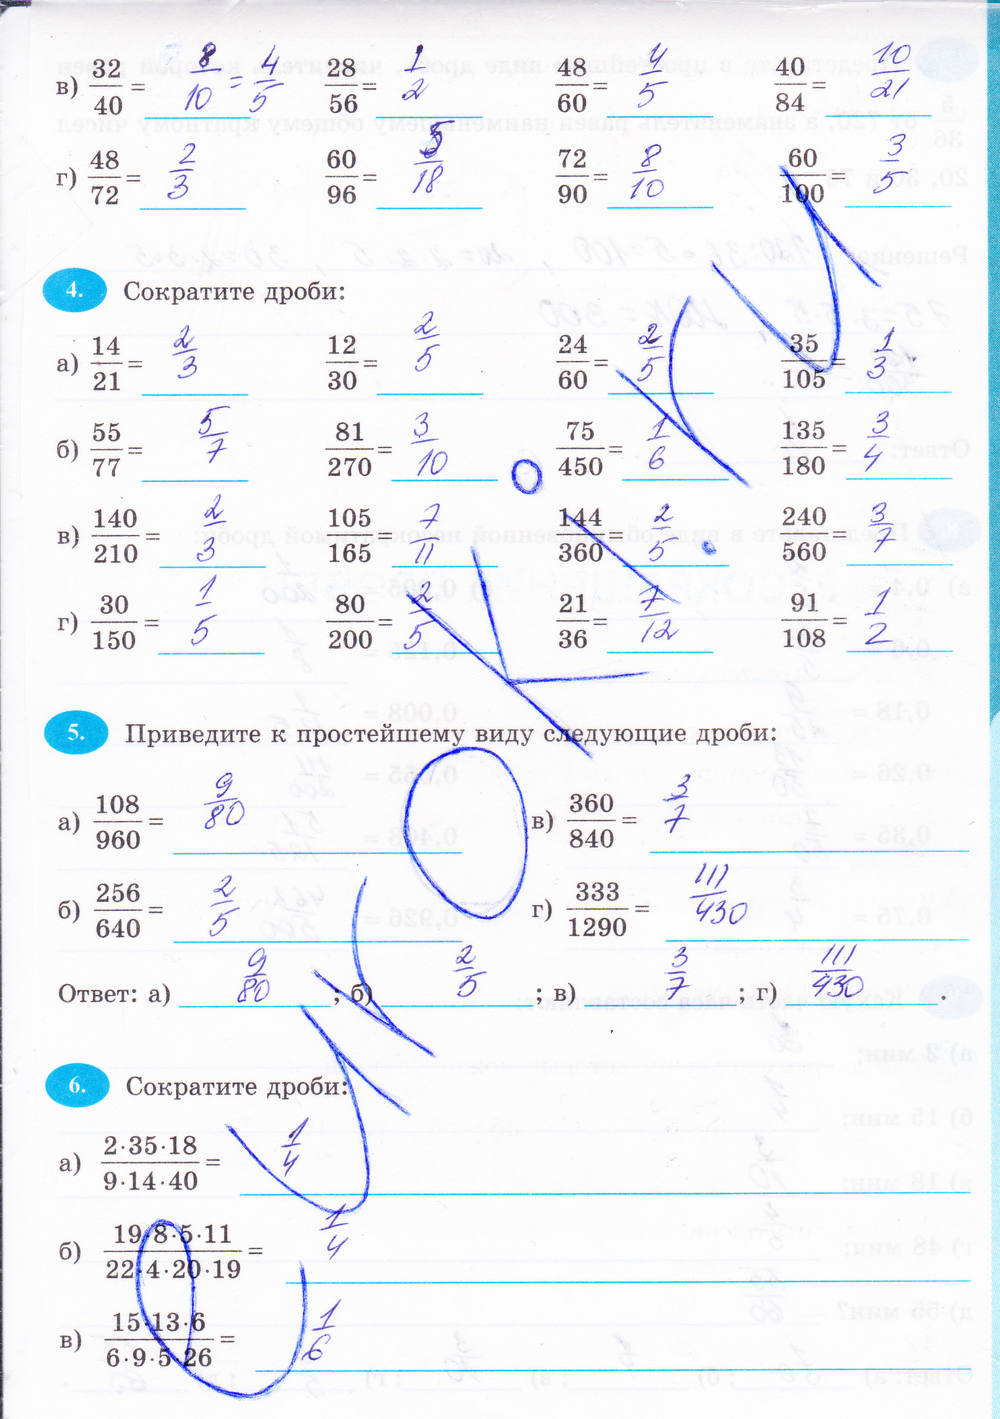 в) 32/40 = 8/10 = 4/5 28/56 = 1/2 48/60 = 4/5 40/84 = 10/21
г) 48/72 = 2/3 60/96 = 5/18 72/90 = 8/10 60/100 = 3/5
4. Сократите дроби:
а) 14/21 = 2/3 12/30 = 2/5 24/60 = 2/5 35/105 = 1/3
б) 55/77 = 5/7 81/270 = 3/10 75/450 = 1/6 135/180 = 3/4
в) 140/210 = 2/3 105/165 = 7/11 144/360 = 2/5 240/560 = 3/7
г) 30/150 = 1/5 80/200 = 2/5 21/36 = 7/12 91/108 = 1/2
5. Приведите к простейшему виду следующие дроби:
а) 108/960 = 9/80 в) 360/840 = 3/7
б) 256/640 = 2/5 г) 333/1290 = 111/430
Ответ: а) 9/80 ; б) 2/5 ; в) 3/7 ; г) 111/430 .
6. Сократите дроби:
а) 2·35·18/9·14·40 = 1/4
б) 19·8·5·11/22·4·20·19 = 1/4
в) 15·13·6/6·9·5·26 = 1/6